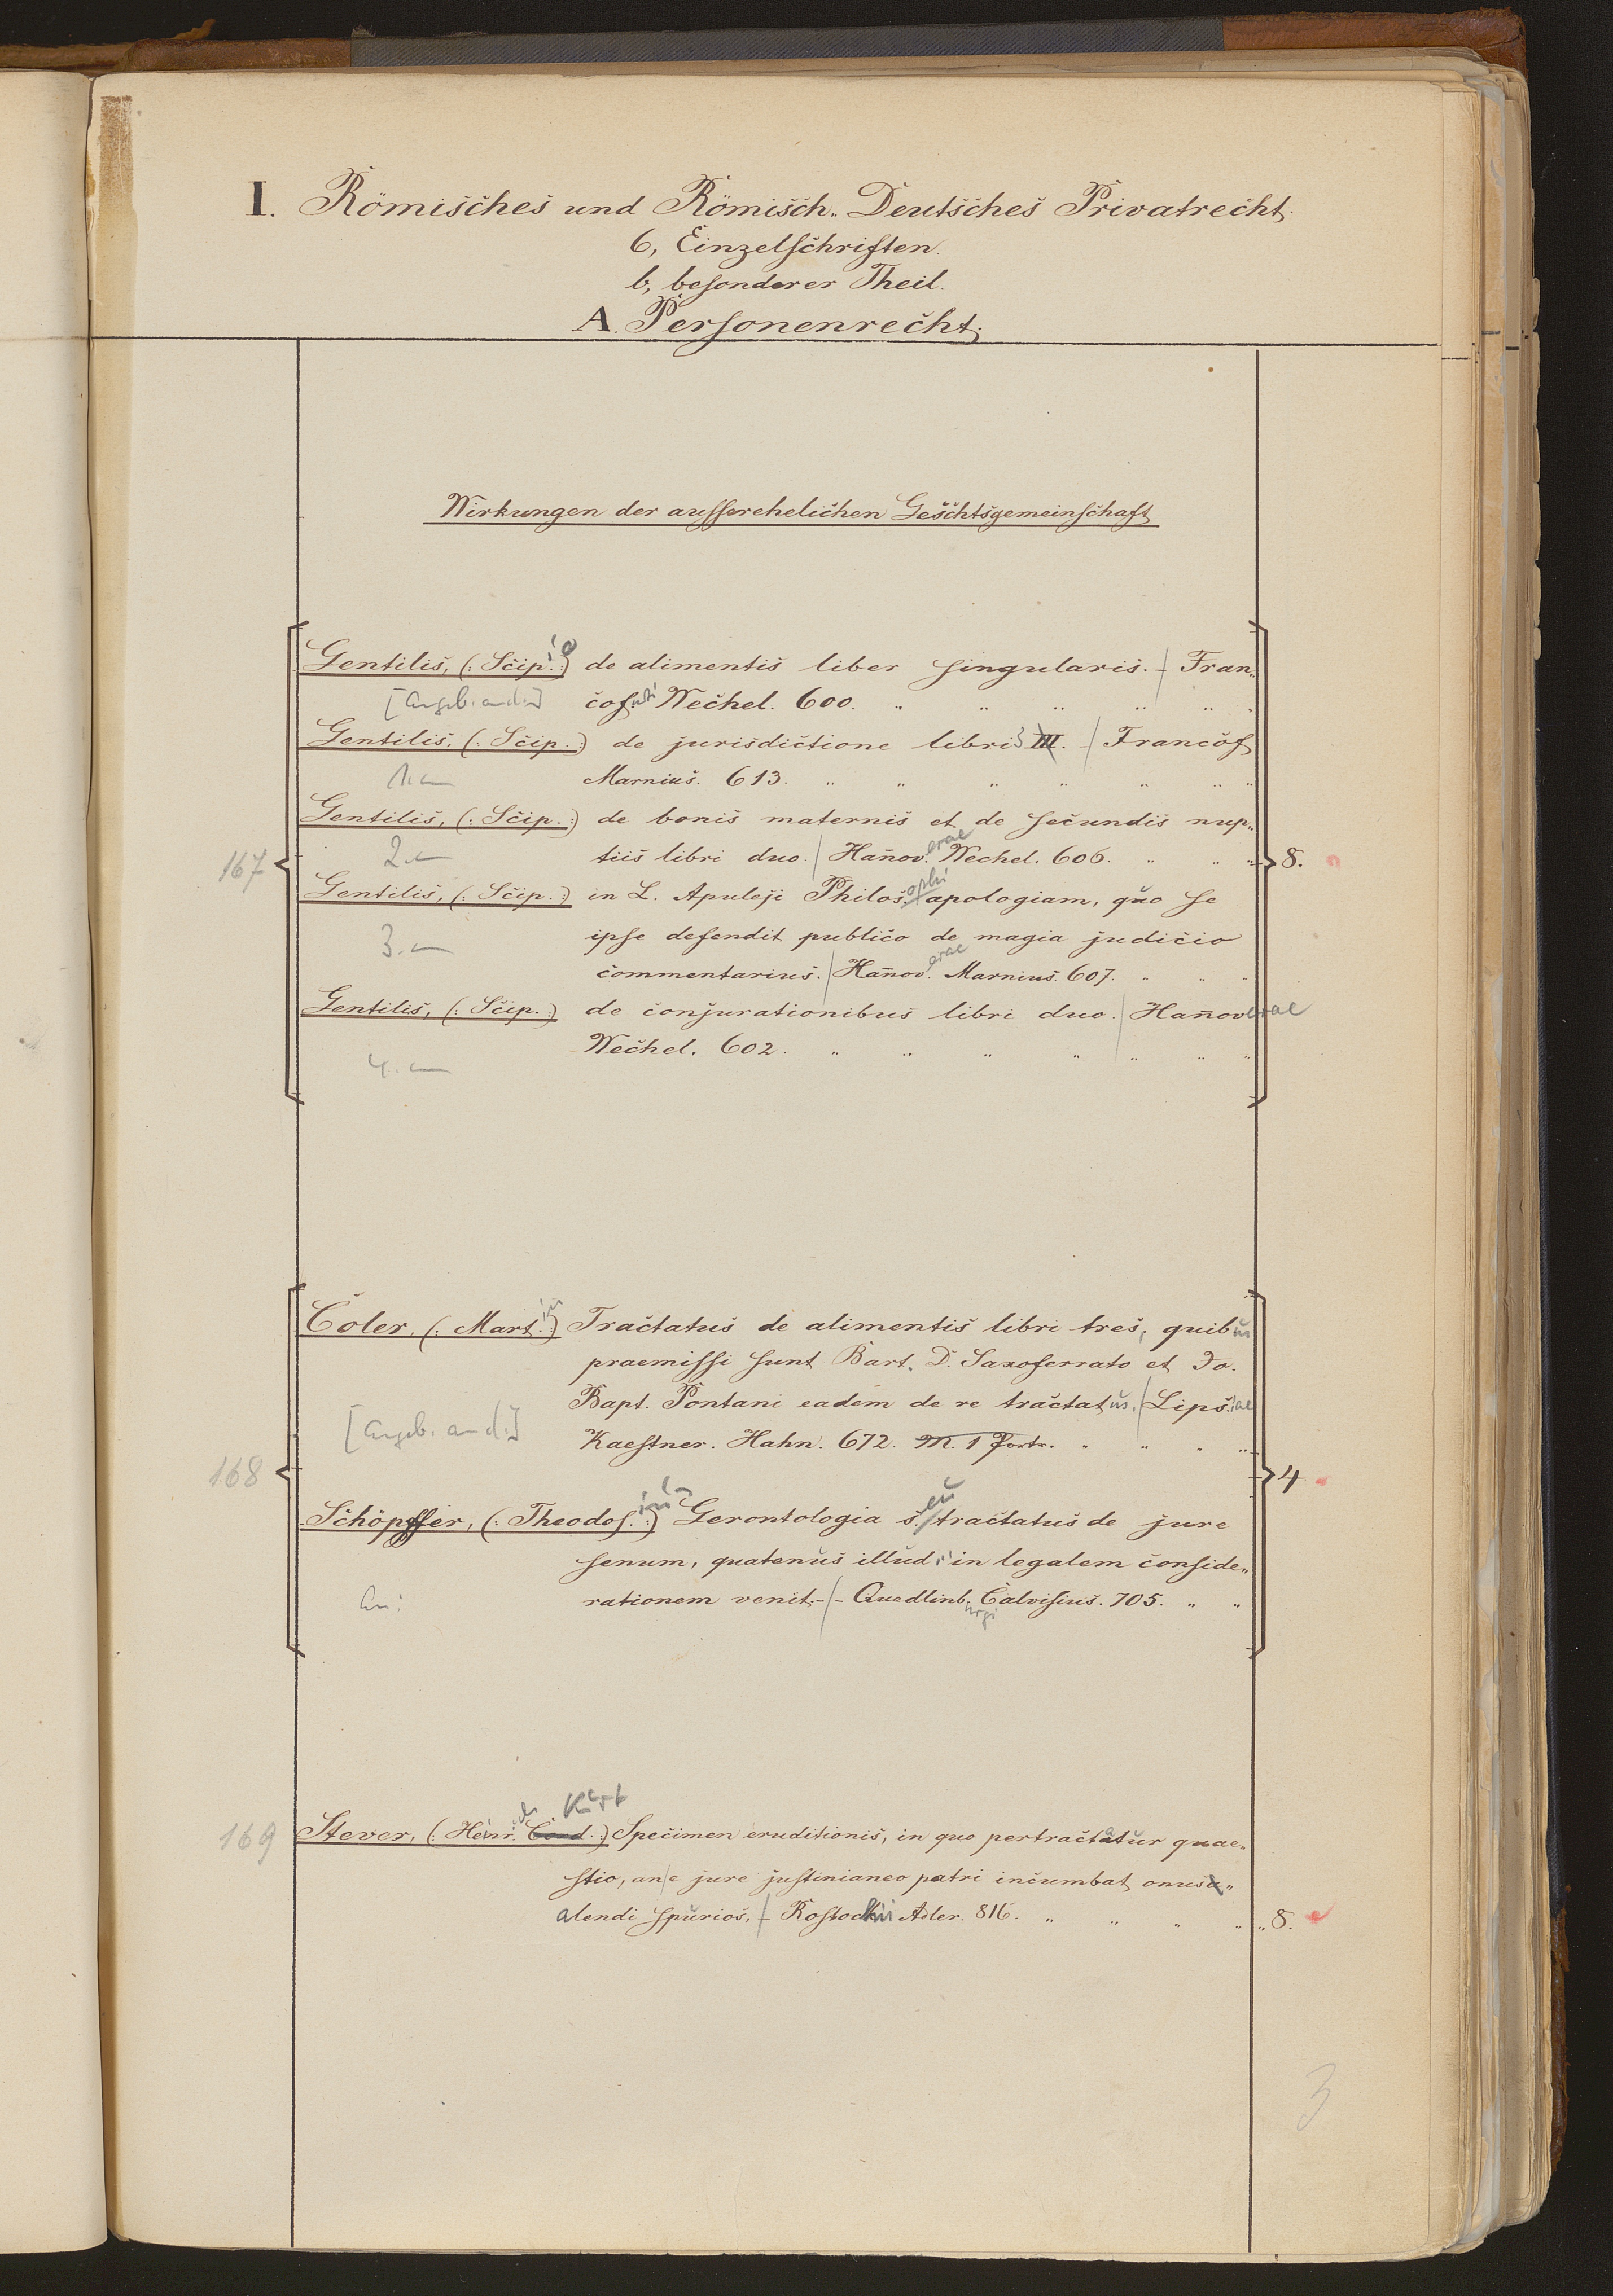 I. Römisches und Römisch-Deutsches Privatrecht.
6, Einzelschriften.
b, besonderer Theil.
A. Personenrecht.
Wirkungen der ausserehelichen Geschtsgemeinschaft
Gentilis, (: Scip.io :) de alimentis liber singularis. - | Fran-
[Angeb. and.:] cofurti Wechel. 600. " " " " " "
Gentilis, (: Scip. :) de jurisdictione libri 3 III. - | Francof
1. Marnius. 613. " " " " " " "
Gentilis, (: Scip. :) de bonis maternis et de secundis nup-
167 2. tiis libri duo. | Hanov.erae Wechel. 606. " " " 8.
Gentilis, (: Scip. :) in L. Apuleji Philos.ophi apologiam, quo se
3. ipse defendit publico de magia judicio
commentarius. | Hanov.erae Marnius. 607. " " "
Gentilis, (: Scip. :) de conjurationibus libri duo. | Hanoverae
4. Wechel. 602. " " " " " " "
Coler, (: Mart.in :) Tractatus de alimentis libri tres, quibus
praemissi sunt Bart. D. Saxoferrato et Jo.
Bapt. Pontani eadem de re tractatus. | Lips.iae
[Angeb. and.:] Kaestner. Hahn. 672. M. 1 Portr. " " " "
168 4
Schöpffer, (: Theodos.ius :) Gerontologia s.eu tractatus de jure
senum, quatenus illud in legalem conside-
An: rationem venit. - | - Quedlinb.urgi Calvisius. 705. " "
Kurt
169 Stever, (: Henr.ich Cond. :) Specimen eruditionis, in quo pertractatur quae-
stio, an | e jure justinianeo patri incumbat onus a-
alendi spurios. - | Rostockii Adler. 816. " " " " " 8.
3